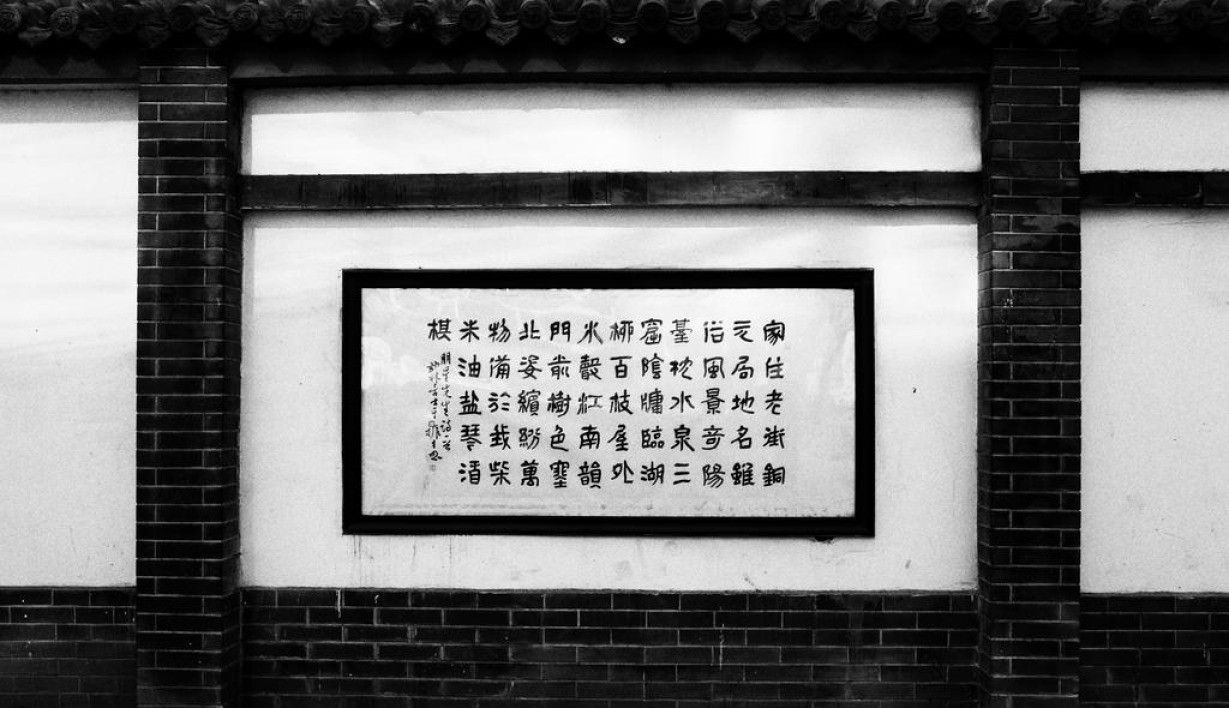 家住老街銅
元局地名雖
俗風景奇陽
臺枕水泉三
窟陰牖臨湖
柳百枝屋外
水聲江南韻
門前樹色塞
北姿繽紛萬
物備於我柴
米油盐琴酒
棋